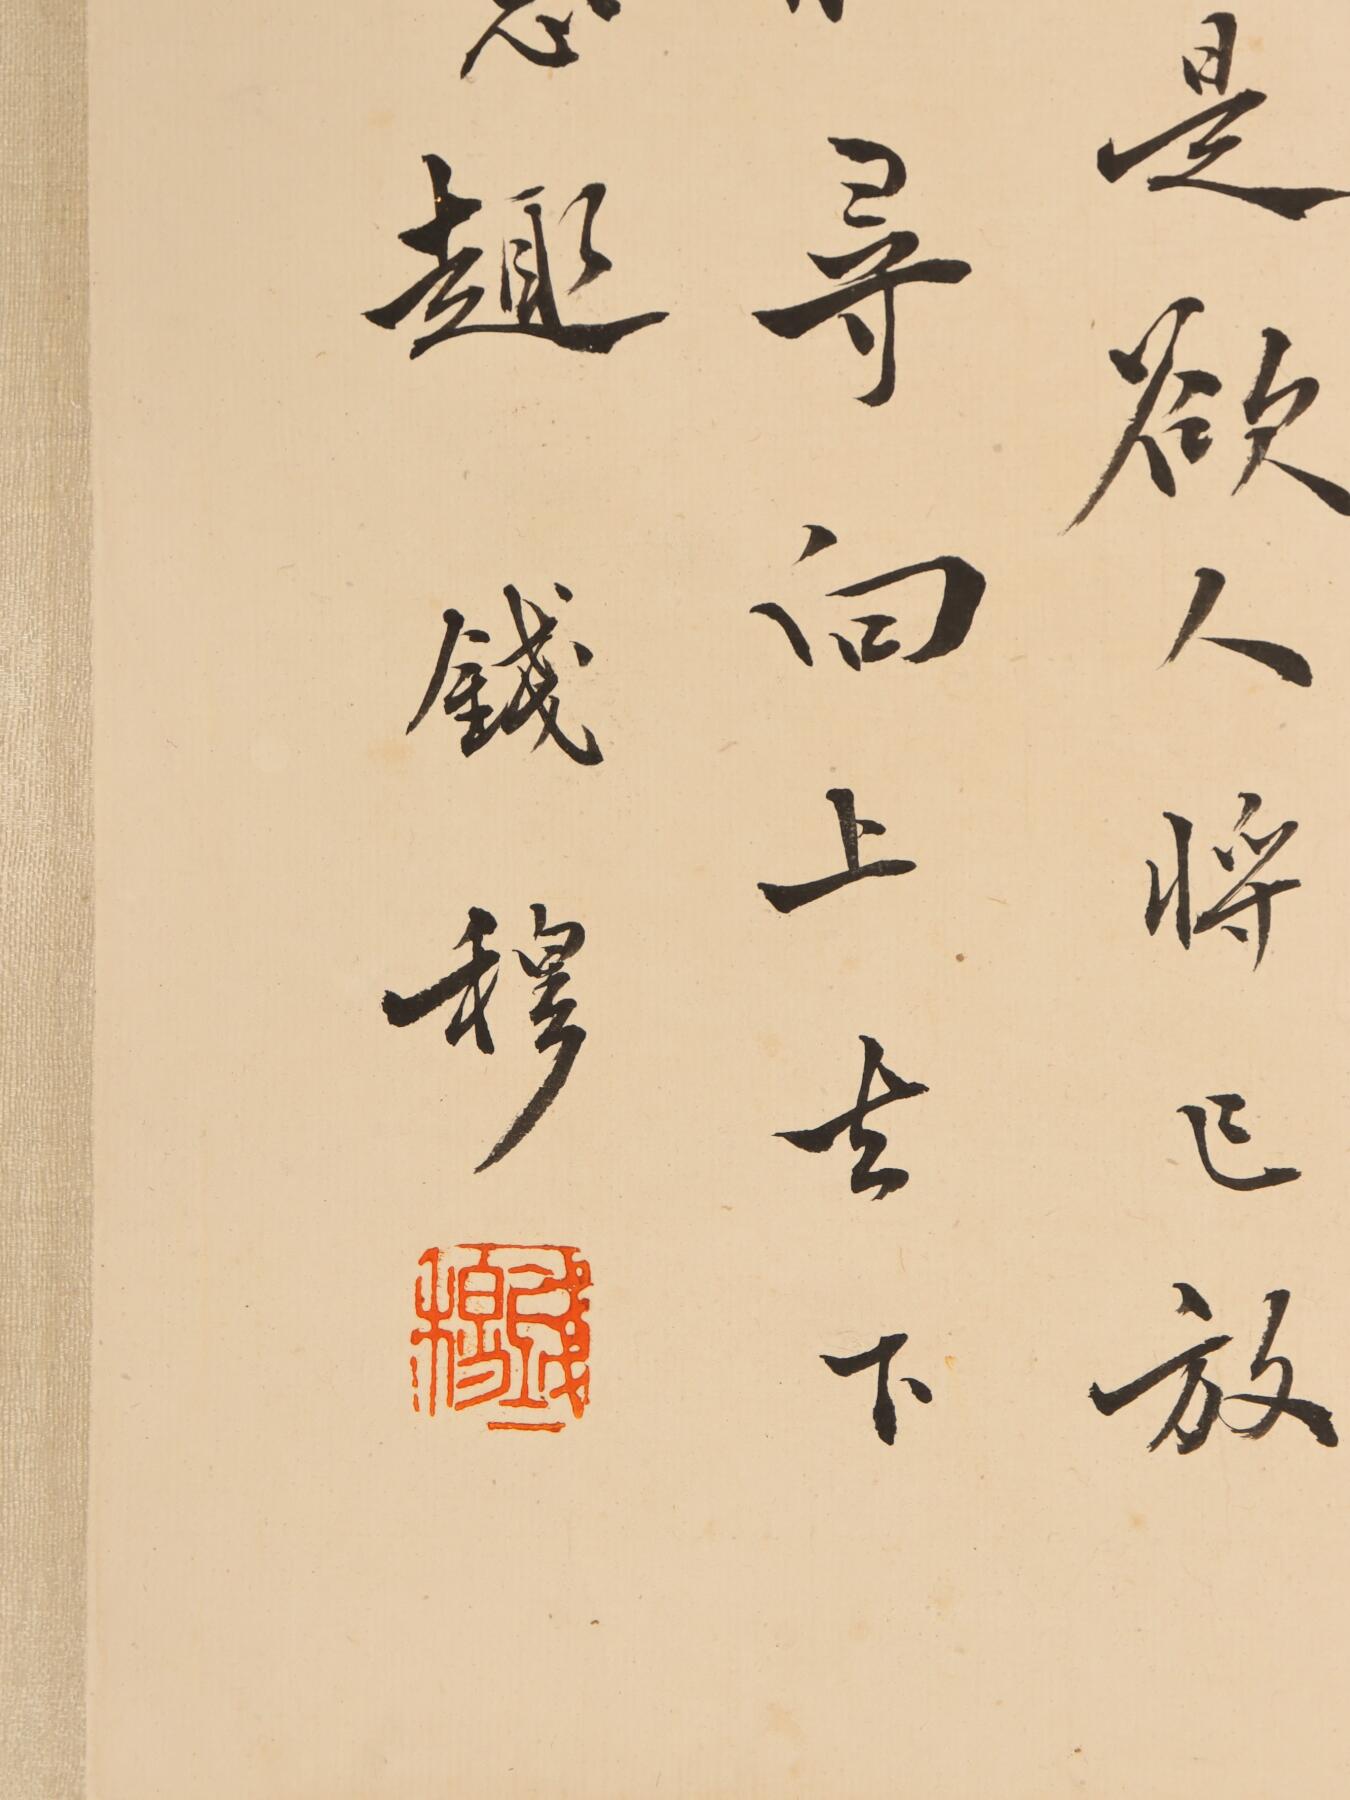 是欲人將已放
尋向上去下
趣 錢穆
錢穆